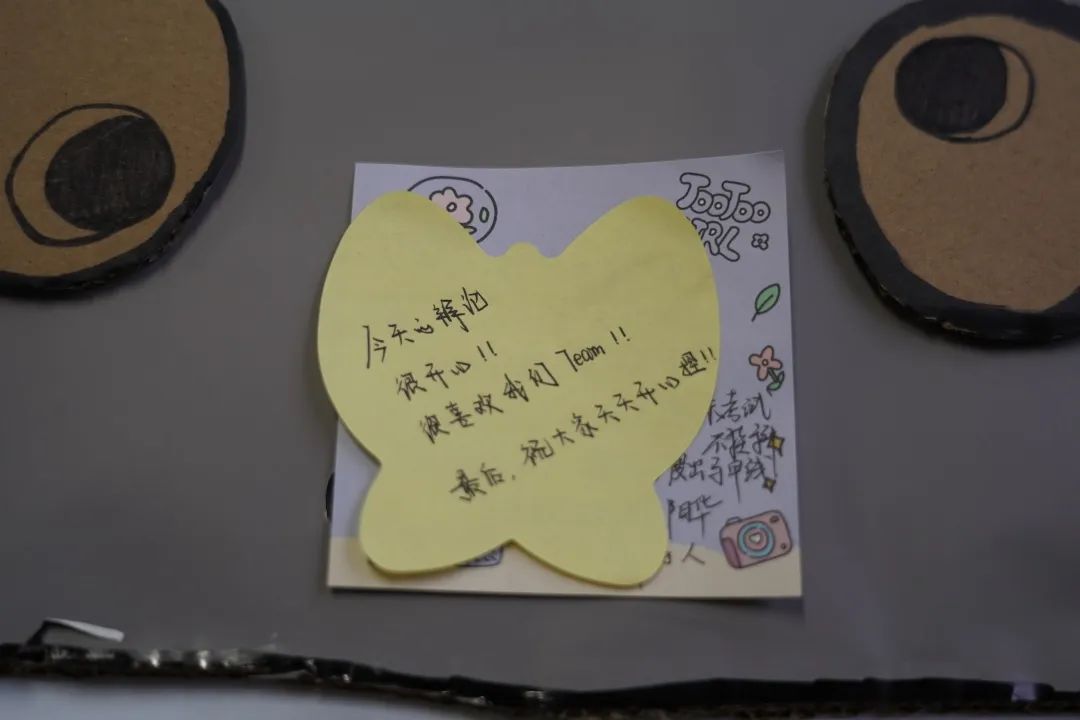 TooToo
GIRL
今天的辩论
很开心!!
很喜欢我们Team!!
最后,祝大家天天开心哩!!
考试
不投
出了甲线
阳华
人